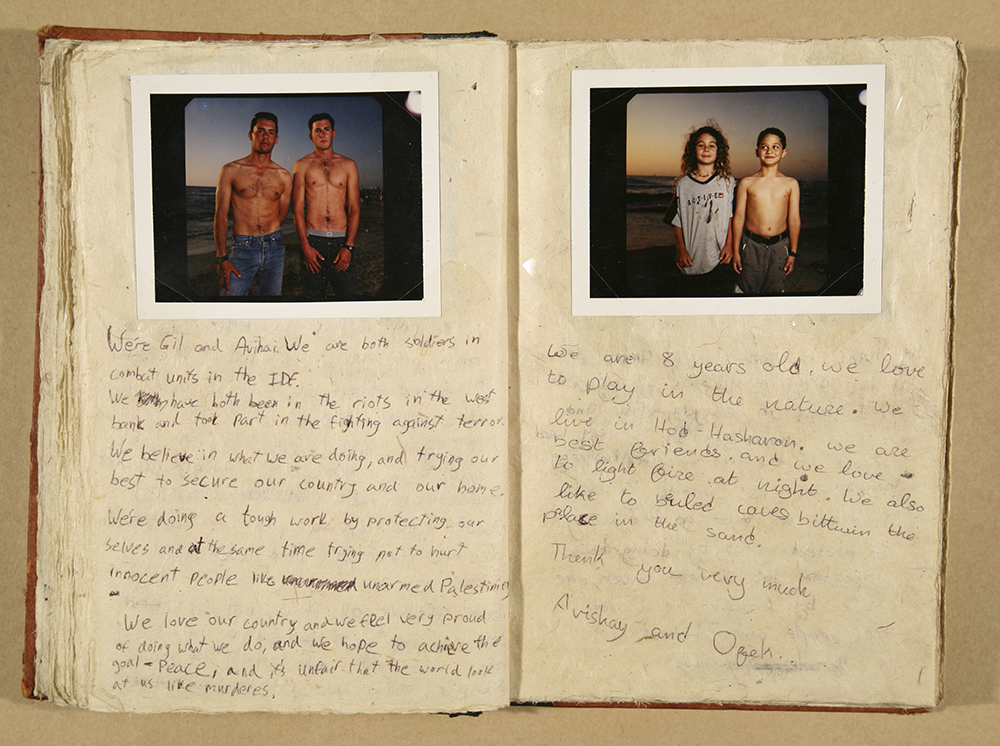 We're Gil and Avihai. We are both soldiers in
combat units in the IDF.
We have both been in the riots in the west
bank and took part in the fighting against terror.
We believe in what we are doing, and trying our
best to secure our country and our home.
We're doing a tough work by protecting our
selves and at the same time trying not to hurt
innocent people like unarmed Palestinies
We love our country and we feel very proud
of doing what we do, and we hope to achieve the
goal - Peace, and it's unfair that the world look
at us like murderes.
ACTIVE
We are 8 years old. we love
to play in the nature. We
live in Hod-Hasharon. we are
best friends. and we love
to light fire at night. We also
like to buled caves bittwin the
palace in the sand.
Thank you very much
Avishay and